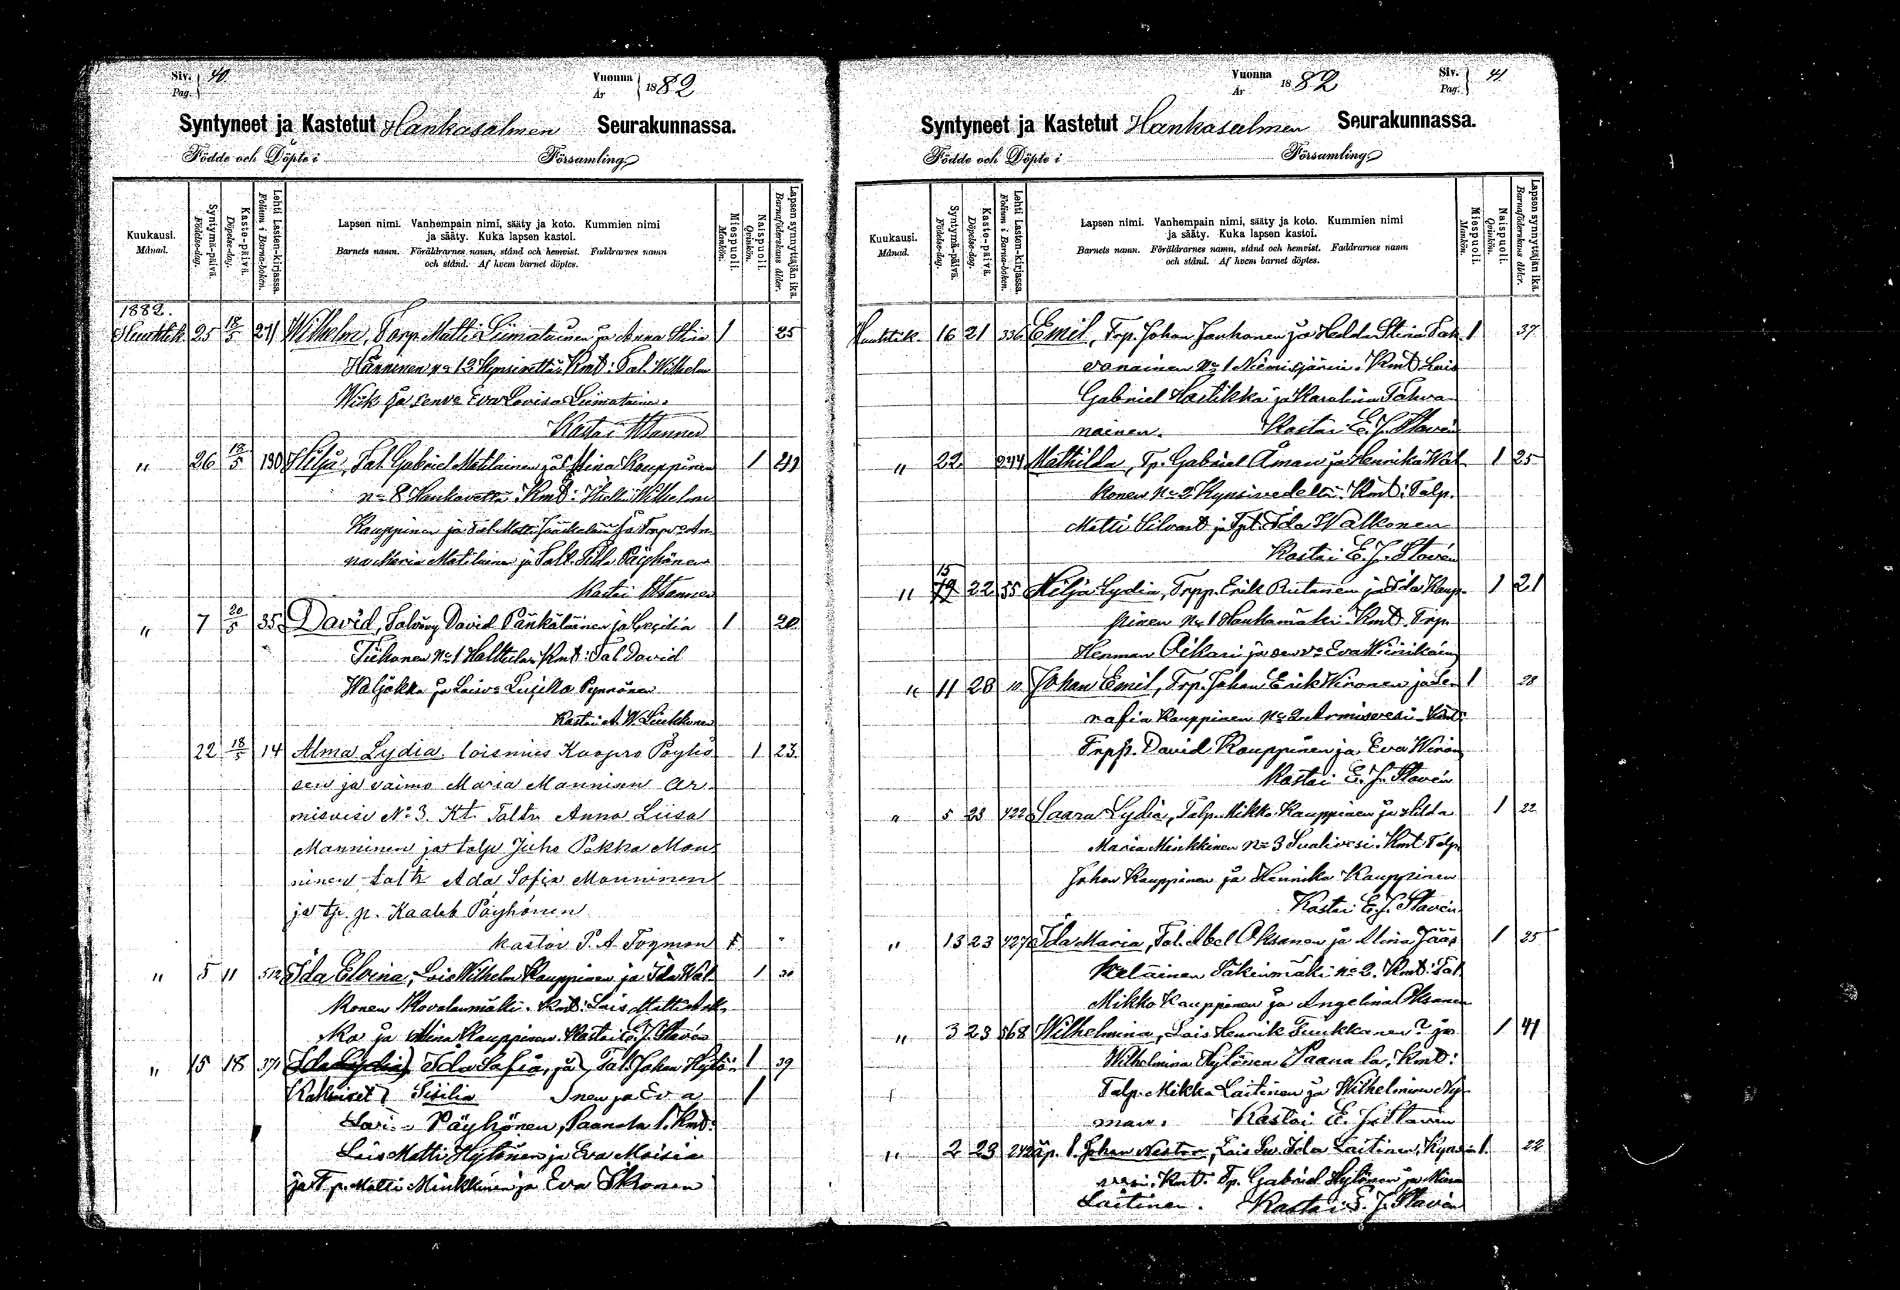 Siv. 40.
Pag.
Vuonna 1882
År
Syntyneet ja Kastetut Hankasalmen Seurakunnassa.
Födde och Döpte i Församling
Kuukausi.
Månad.
Syntymä-päivä.
Födelse-dag.
Kaste-päivä.
Döpelse-dag.
Lehti Lasten-kirjassa.
Folium i Barna-boken.
Lapsen nimi. Vanhempain nimi, sääty ja koto. Kummien nimi
ja sääty. Kuka lapsen kastoi.
Barnets namn. Föräldrarnes namn, stånd och hemvist. Faddrarnes namn
och stånd. Af hvem barnet döptes.
Miespuoli.
Mankön.
Naispuoli.
Qvinkön.
Lapsen synnyttäjän ikä.
Barnaföderskans ålder.
1882.
Huhtik. 25 18/5 271 Wilhelm, Torp. Matti Liimatainen ja Anna Stina 1 25
Hänninen No 13 Kynsivettä. Kmt: Tal. Wilhelm
Wiik ja senva Eva Lovisa Liimatainen.
Kastoi
" 26 18/5 190 Hilja, Tal. Gabriel Matilainen ja Stina Kauppinen 1 41
No 8 Hankavettä. Kmt: Wilhelm
Kauppinen ja Tal. Matti Jääskeläinen ja Torp. va An-
na Maria Matilainen ja Talt. Ida Päyhönen
Kastoi
" 7 20/5 35 David, David Pänkäläinen ja Cecilia 1 20
Tiihonen No 1 Halttula. Kmt: Tal. David
Waljakka ja Loisva Pynnönen
Kastoi A. W. Liukkonen
22 18/5 14 Alma Lydia loismies Kaapro Pöyhö- 1 23.
sen ja vaimo Maria Manninen Ar-
misvesi No 3. Kt. Taltr. Anna Liisa
Manninen ja talp. Juho Pekka Man-
ninen taltr. Ada Sofia Manninen
ja tp. p. Kaaleb Päyhönen
kastoi P. A. Toyman
" 5 11 512 Ida Elvina, Lois Wilhelm Kauppinen ja Ida Wal- 1 30
konen Kovalanmäki. Kmt: Lois Matti
ja Miina Kauppinen. Kastoi E. J. Stavén
" 15 18 371 Ida Sofia, ja Tal. Johan Hytö- 1 39
Kaksoiset Sisilia nen ja Eva 1
Päyhönen, Paanala 1. Kmt:
Lois Matti Hytönen ja Eva Maisia
ja Tp. Matti Minkkinen ja Eva Ikonen
Vuonna 1882
År
Siv. 41.
Pag.
Syntyneet ja Kastetut Hankasalmen Seurakunnassa.
Födde och Döpte i Församling
Kuukausi.
Månad.
Syntymä-päivä.
Födelse-dag.
Kaste-päivä.
Döpelse-dag.
Lehti Lasten-kirjassa.
Folium i Barna-boken.
Lapsen nimi. Vanhempain nimi, sääty ja koto. Kummien nimi
ja sääty. Kuka lapsen kastoi.
Barnets namn. Föräldrarnes namn, stånd och hemvist. Faddrarnes namn
och stånd. Af hvem barnet döptes.
Miespuoli.
Mankön.
Naispuoli.
Qvinkön.
Lapsen synnyttäjän ikä.
Barnaföderskans ålder.
Huhtik. 16 21 336 Emil, Trp. Johan Jauhonen ja Hedda Stina Tah- 1 37
vanainen No 1 Niemisjärvi. Kmt. Lois
Gabriel Hastikka ja Karoliina Tahva-
nainen. Kastoi E. J. Stavén
" 22 244 Mathilda, Tp. Gabriel Åman ja Henrika Wal- 1 25
konen No 2 Kynsivedeltä. Kmt: Talp.
Matti Silvast ja Tpt. Ida Walkonen
Kastoi E. J. Stavén
" 15 22 55 Hilja Lydia, Trpp. Erik Rutanen ja Ida Kaup- 1 21
pinen No 1 Hankamäki. Kmt. Trp.
Herman Oikari ja senva Eva Wiinikain
" 11 23 10 Johan Emil, Trp. Johan Erik Wironen ja Se- 1 28
rafia Kauppinen No 2 Armisvesi. Kmt:
Trpp. David Kauppinen ja Eva Wiron
Kastoi E. J. Stavén
" 5 23 422 Saara Lydia, Talp. Mikko Kauppinen ja Hilda 1 22
Maria Minkkinen No 3 Sualivesi. Kmt. Talp.
Johan Kauppinen ja Hennika Kauppinen
Kastoi E. J. Stavén
" 13 23 427 Ida Maria, Tal. Abel Oksanen ja Miina Jääs- 1 25
keläinen Säkinmäki No 2. Kmt: Tal.
Mikko Kauppinen ja Angelina Oksanen
" 3 23 568 Wilhelmina, Lois Henrik Tuukkanen? ja 1 41
Wilhelmina Hytönen Paanala, Kmt:
Talp. Mikko Laitinen ja Wilhelmina Ny-
man. Kastoi E. J. Stavén
" 2 23 242 äp. l. Johan Nestor, Lois Ida Laitinen, Kynsi- 1. 22
vesi. Kmt. Tp. Gabriel Hytönen ja Miina
Laitinen. Kastoi E. J. Stavén